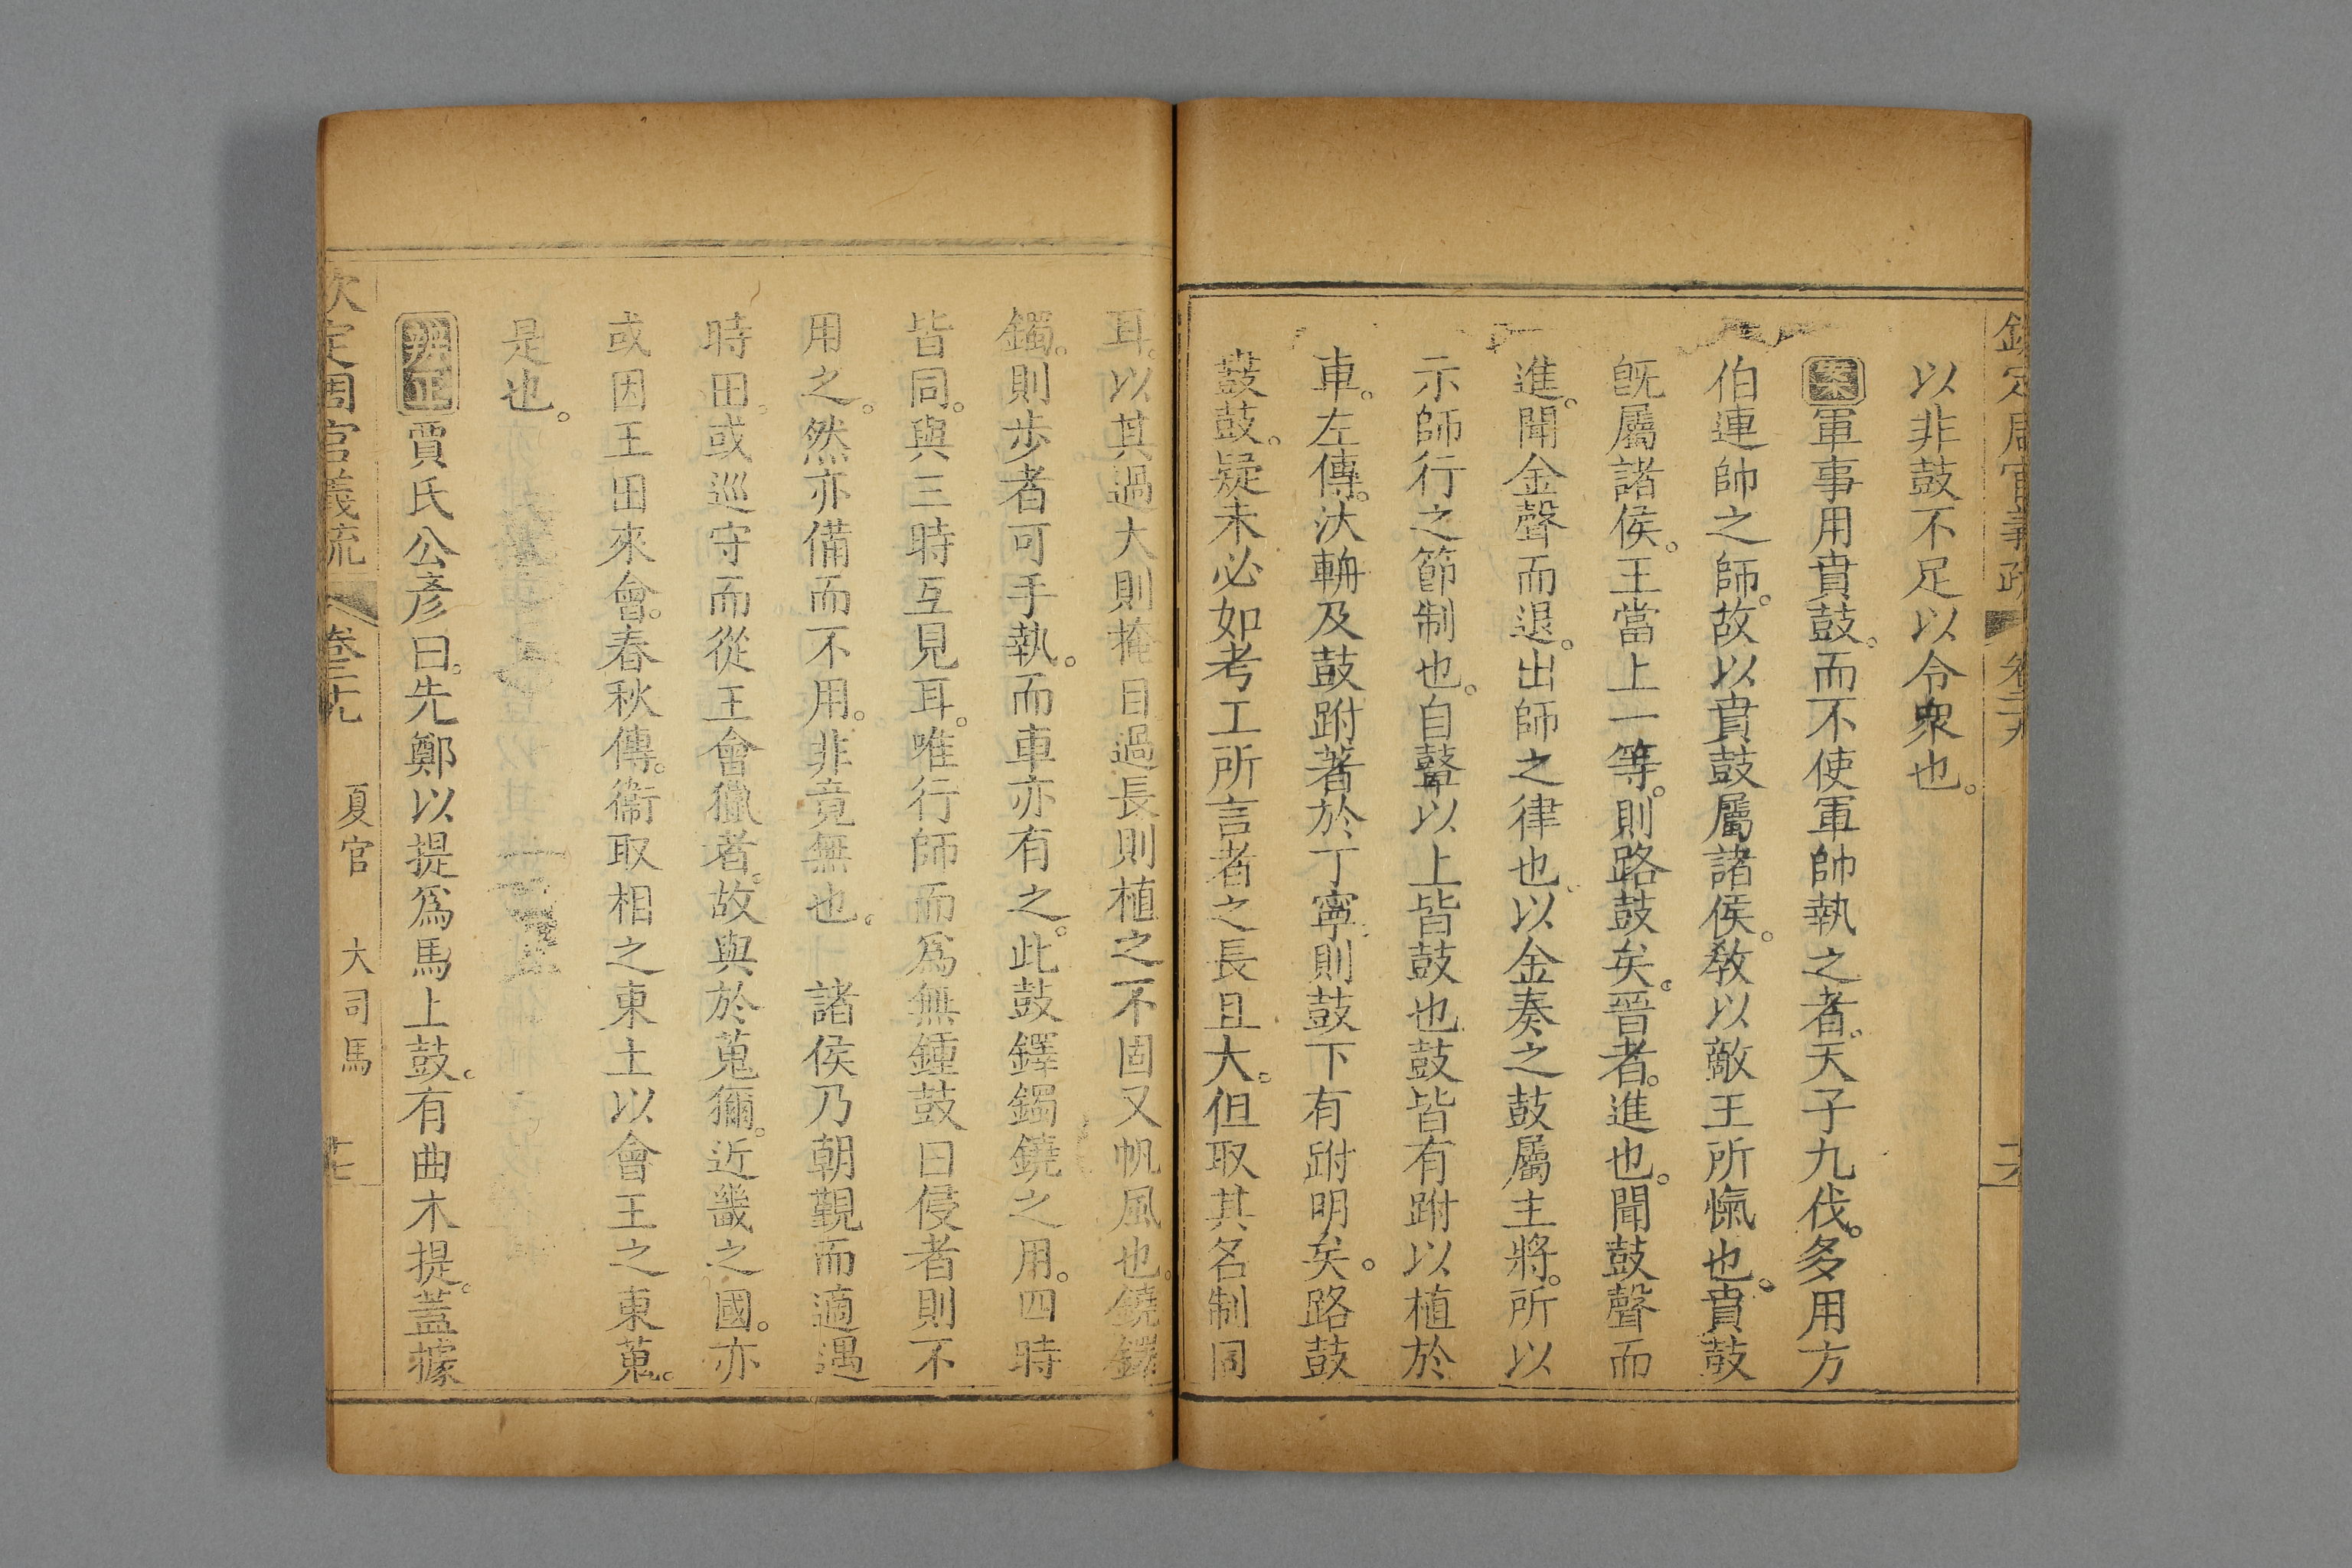 欽定周官義疏 卷三十九 二十六
以非鼓不足以令衆也。
案軍事用賁鼓。而不使軍帥執之者。天子九伐。多用方
伯連帥之師。故以賁鼓屬諸侯。敎以敵王所愾也。賁鼓
旣屬諸侯。王當上一等。則路鼓矣。晉者。進也。聞鼓聲而
進。聞金聲而退。出師之律也。以金奏之鼓屬主將。所以
示師行之節制也。自鼛以上皆鼓也。鼓皆有跗以植於
車。左傳。汏輈及鼓跗著於丁寧。則鼓下有跗明矣。路鼓
鼖鼓。疑未必如考工所言者之長且大。但取其名制同
耳。以其過大則掩目過長則植之不固又帆風也。鐃鐸
鐲。則步者可手執。而車亦有之。此鼓鐸鐲鐃之用。四時
皆同。與三時互見耳。唯行師而爲無鍾鼓曰侵者則不
用之。然亦備而不用。非竟無也。 諸侯乃朝覲而適遇
時田。或巡守而從王會獵者。故與於蒐獮。近畿之國。亦
或因王田來會。春秋傳。衞取相之東土以會王之東蒐。
是也。
辨正賈氏公彥曰。先鄭以提爲馬上鼓。有曲木提。蓋據
欽定周官義疏 卷三十九 夏官 大司馬 二十七